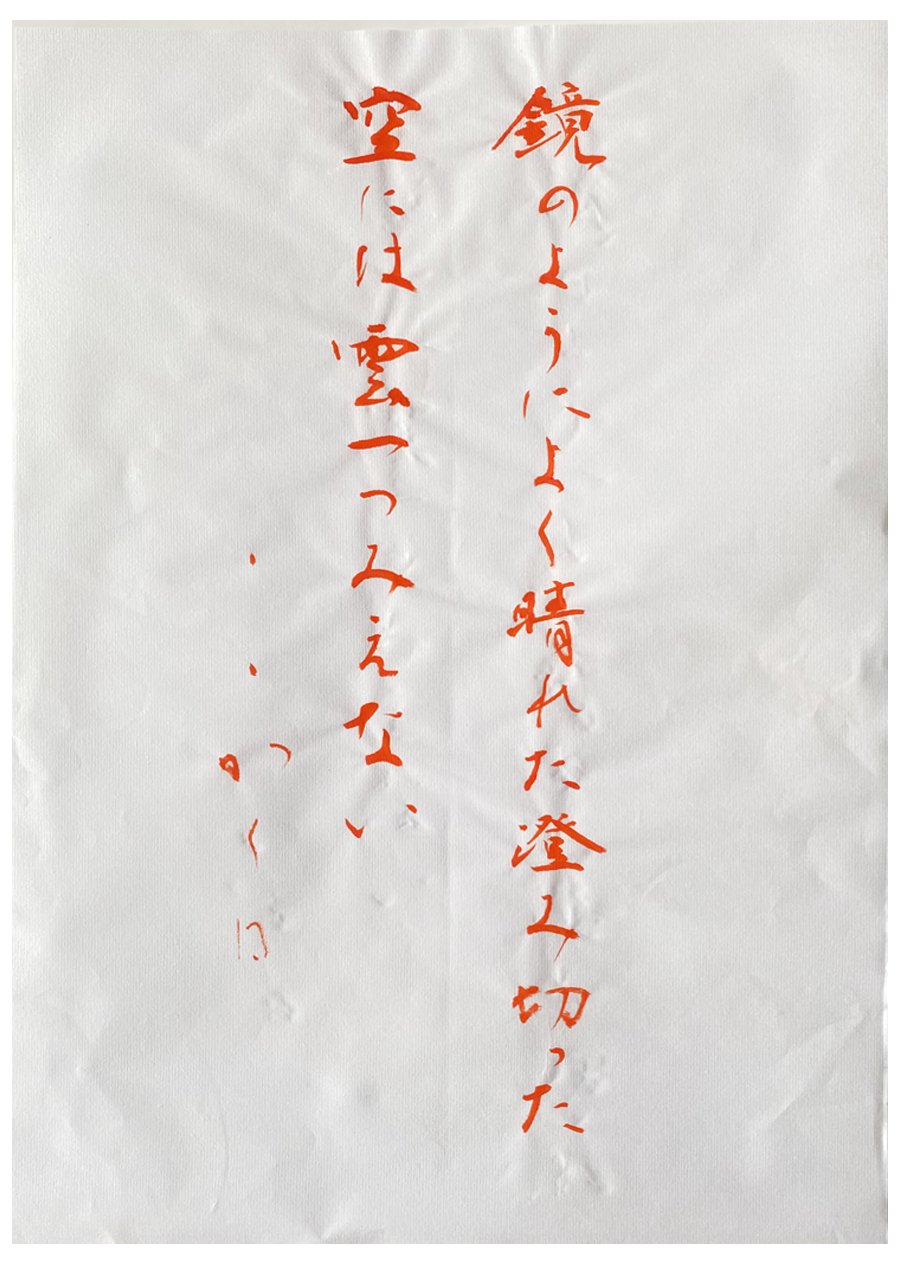 鏡のようによく晴れた澄み切った
空には雲一つみえない